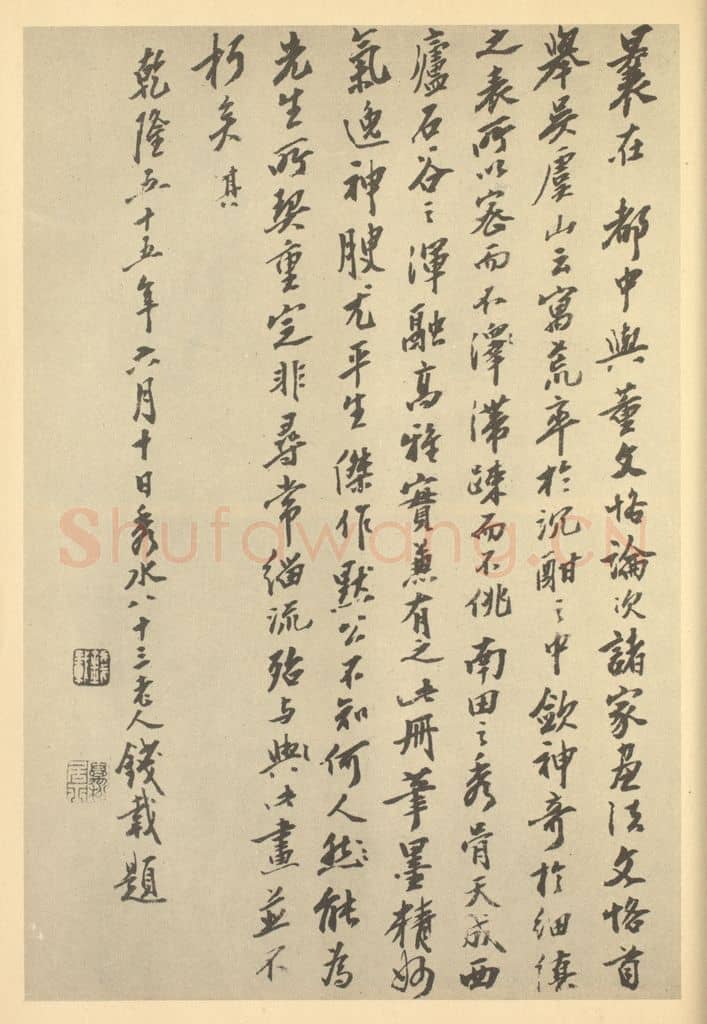 曩在都中與董文恪論次諸家畫法文恪首
舉吳虞山云寓荒率於沉酣之中斂神奇於細縝
之表所以密而不滯疎而不佻南田之秀骨天成西
廬石谷之渾融高雅實兼有之此冊筆墨精妙
氣逸神腴尤平生傑作默公不知何人然能為
先生所契重定非尋常緇流殆与與此畫並不
朽矣其
乾隆五十五年六月十日秀水八十三老人錢載題
Shufawang.CN